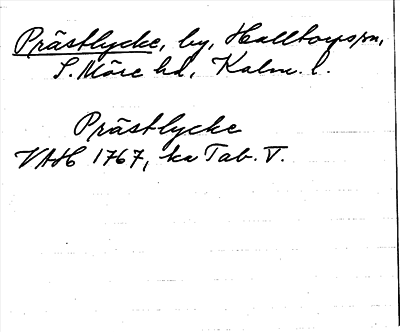 Prästlycke, by, Halltorps sn,
S. Möre hd, Kalm. l.
Prästlycke
VAH 1767, ka Tab. V.